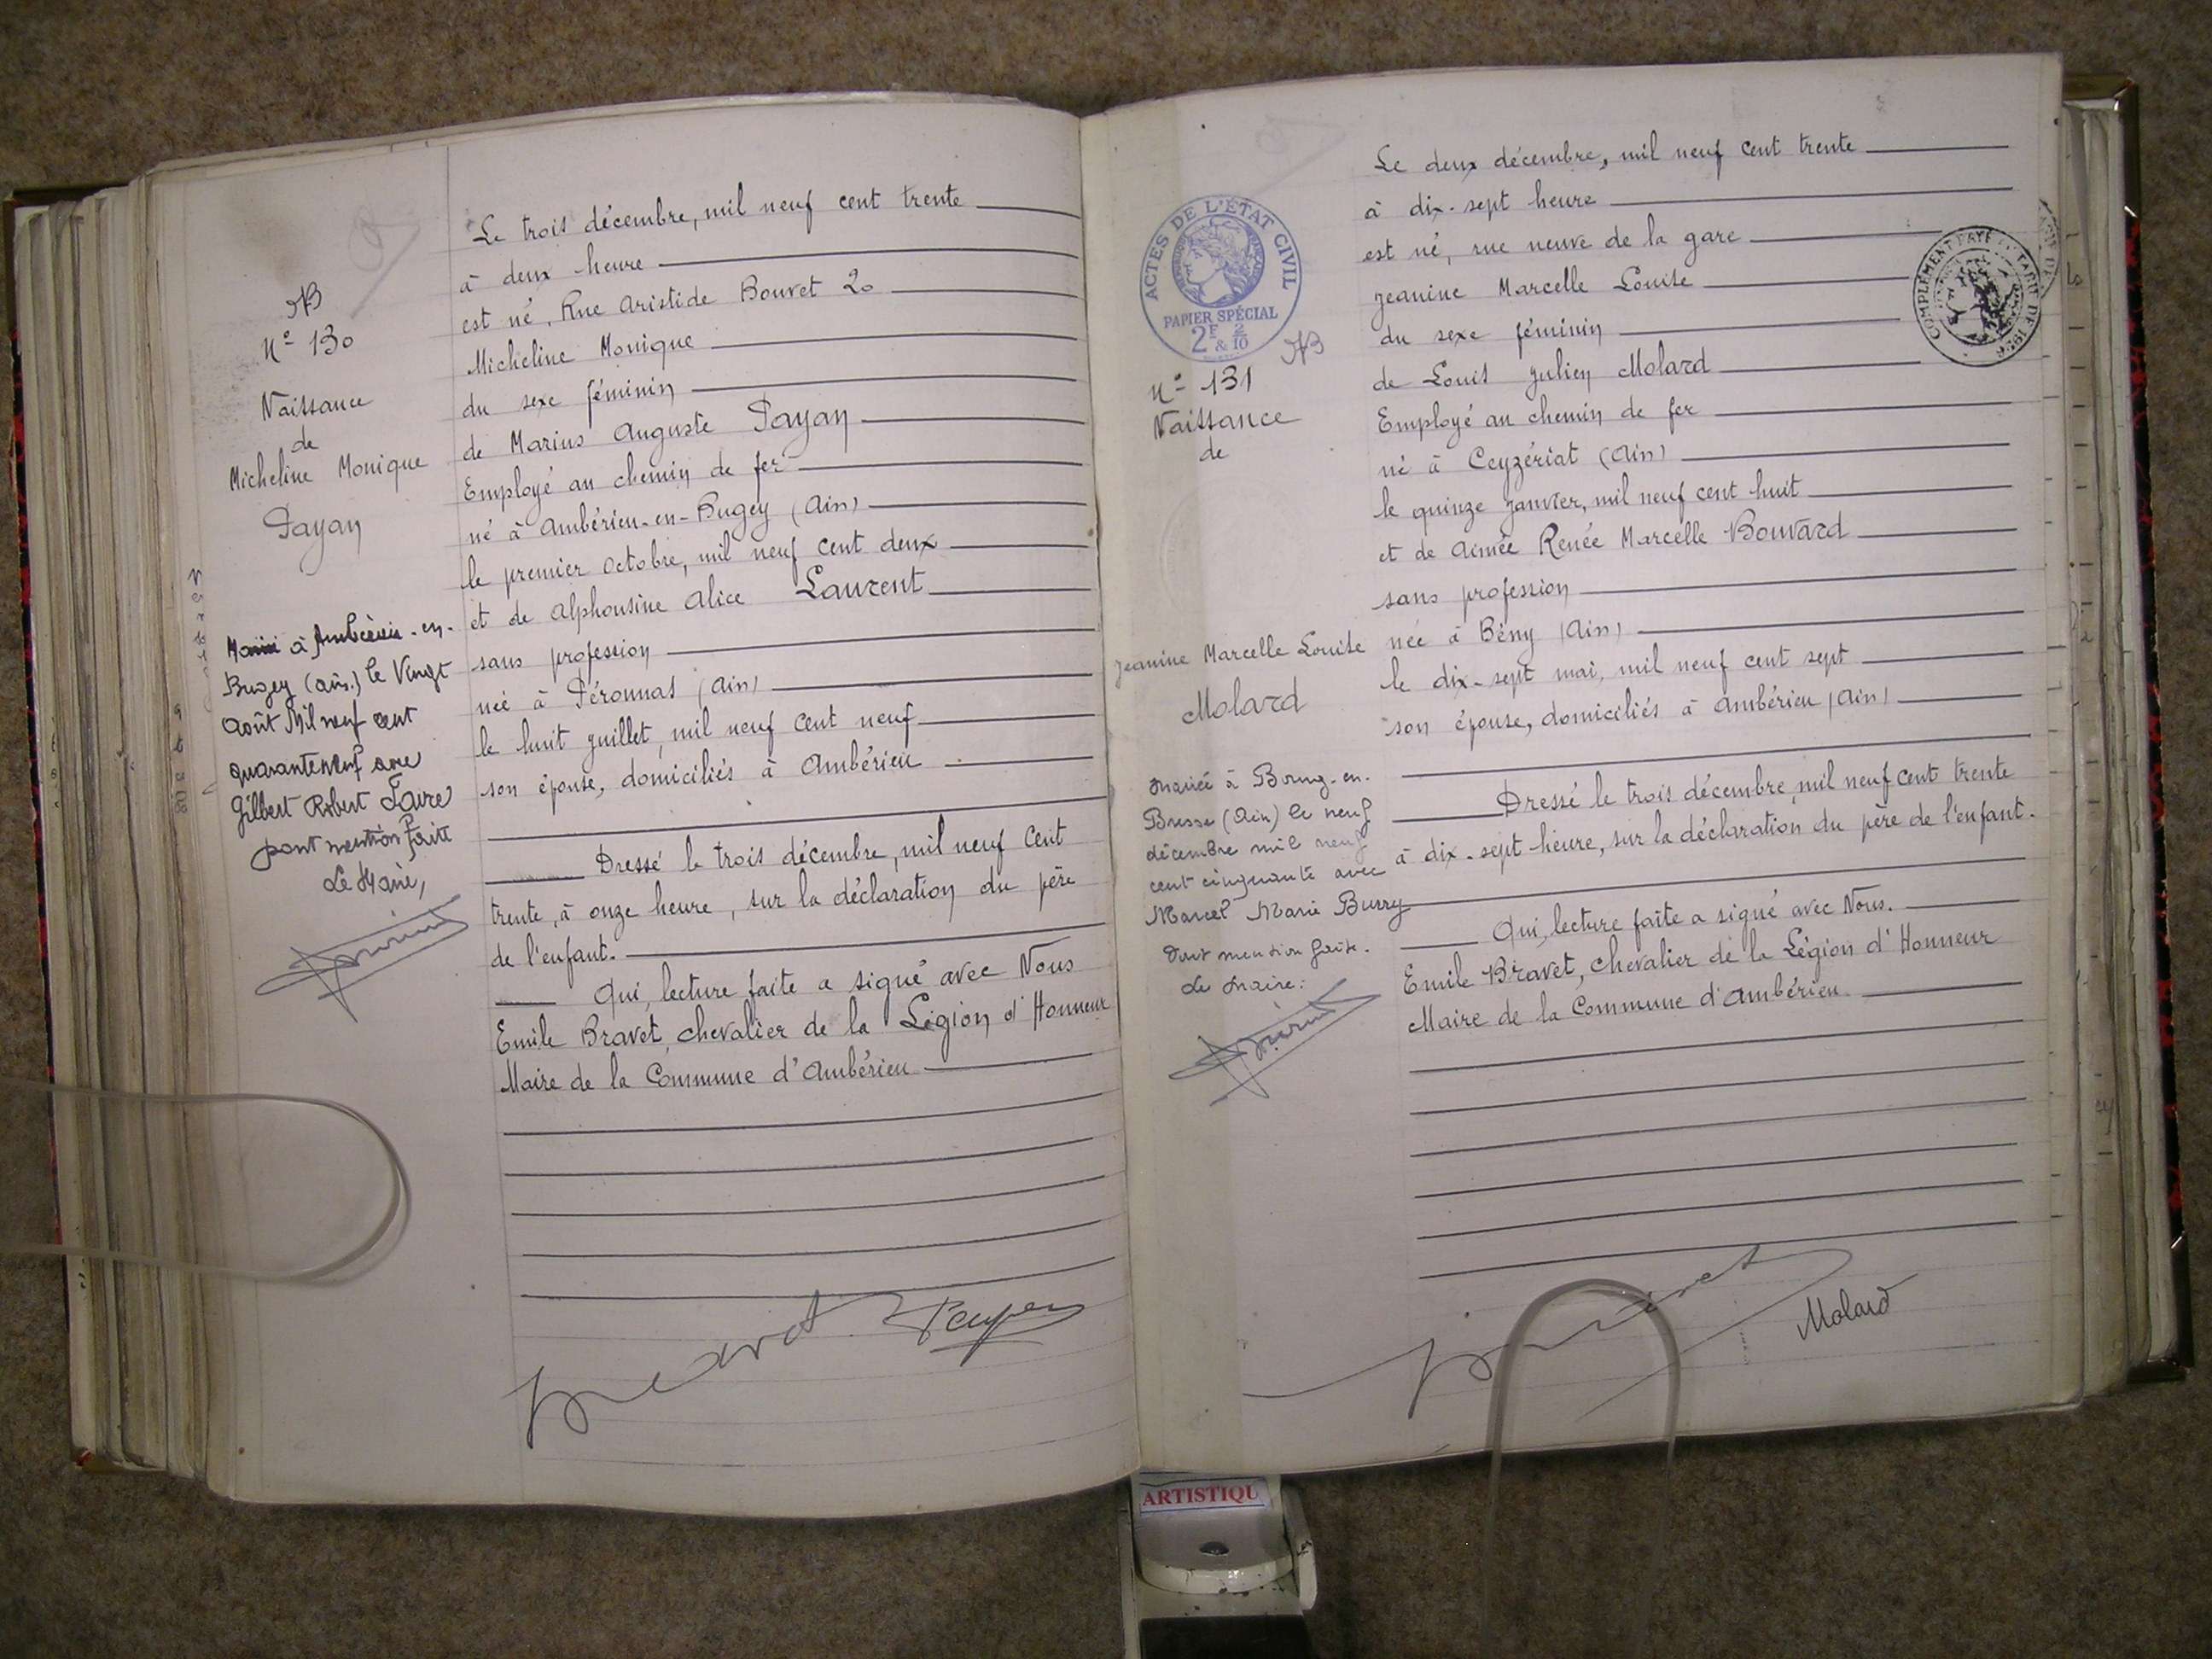 N° 130
Naissance
de
Micheline Monique
Payan
Marié à Ambérieu-en-
Bugey (Ain) le Vingt
Août Mil neuf cent
quarante neuf avec
Gilbert Robert Favre
dont mention faite
Le Maire,
Le trois décembre, mil neuf cent trente
à deux heure
est né, Rue Aristide Bouvet 20
Micheline Monique
du sexe féminin
de Marius Auguste Payan
Employé au chemin de fer
né à Ambérieu-en-Bugey (Ain)
le premier Octobre, mil neuf cent deux
et de Alphonsine Alice Laurent
sans profession
née à Péronnas (Ain)
le huit juillet, mil neuf cent neuf
son épouse, domiciliés à Ambérieu
Dressé le trois décembre, mil neuf cent
trente, à onze heure, sur la déclaration du père
de l'enfant.
Qui, lecture faite a signé avec Nous
Emile Bravet, chevalier de la Légion d'Honneur
Maire de la Commune d'Ambérieu
Bravet
Payan
ACTES DE L'ÉTAT CIVIL
PAPIER SPÉCIAL
2F & 2/10
N° 131
Naissance
de
Jeanine Marcelle Louise
Molard
Mariée à Bourg-en-
Bresse (Ain) le neuf
décembre mil neuf
cent cinquante avec
Marcel Marie Burry
Dont mention faite.
Le Maire:
Le deux décembre, mil neuf cent trente
à dix-sept heure
est né, rue neuve de la gare
Jeanine Marcelle Louise
du sexe féminin
de Louis Julien Molard
Employé au chemin de fer
né à Ceyzériat (Ain)
le quinze janvier, mil neuf cent huit
et de Aimée Renée Marcelle Bouvard
sans profession
née à Bény (Ain)
le dix-sept mai, mil neuf cent sept
son épouse, domiciliés à Ambérieu (Ain)
Dressé le trois décembre, mil neuf cent trente
à dix-sept heure, sur la déclaration du père de l'enfant.
Qui, lecture faite a signé avec Nous.
Emile Bravet, chevalier de la Légion d'Honneur
Maire de la Commune d'Ambérieu
COMPLÉMENT PAYÉ TARIF DE
Molard
ARTISTIQU